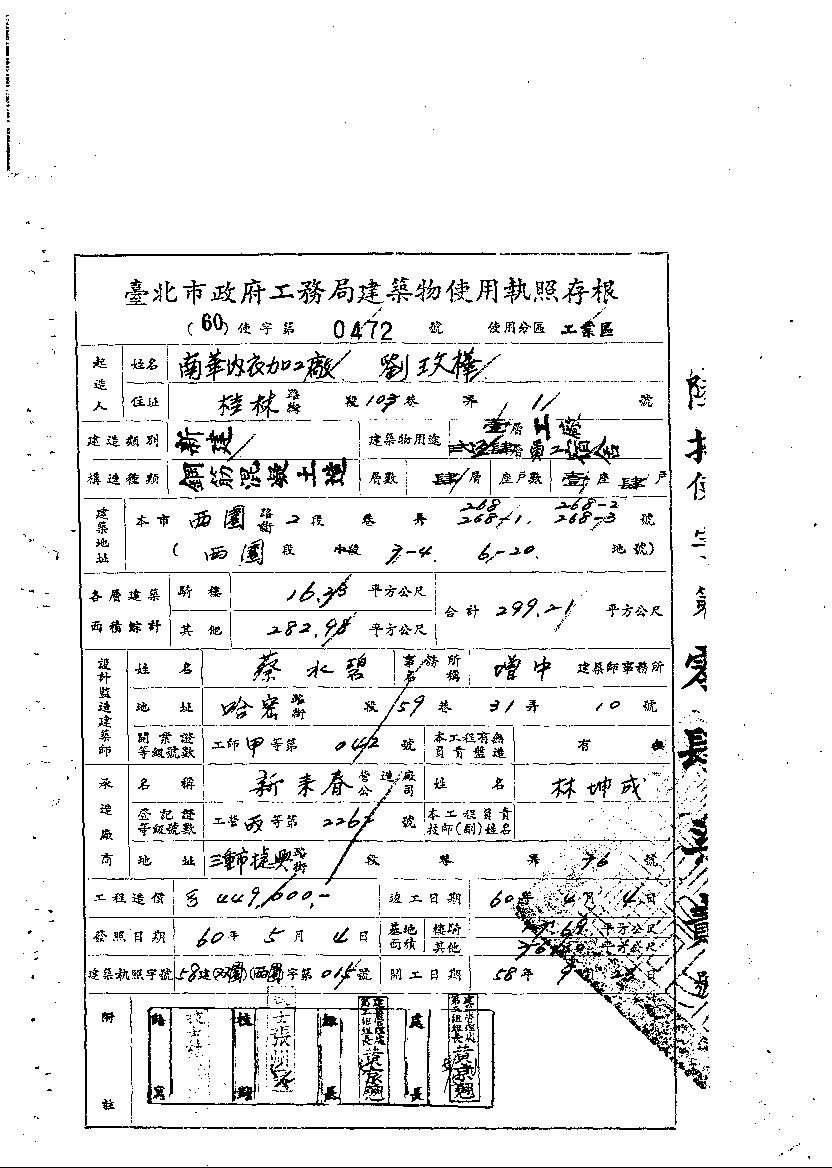 臺北市政府工務局建築物使用執照存根
(60)使字第 0472 號 使用分區 工業區
起造人 姓名 南華內衣加工廠 劉玟樺
住址 桂林 路街 段 103 巷 弄 11 號
建造類別 新建 建築物用途 壹層工廠
貳叁肆層員工宿舍
構造種類 鋼筋混凝土造 層數 肆層 座戶數 壹座肆戶
建築地址 本市 西園 路街 2 段 巷 弄 268 268-1. 268-2 268-3 號
( 西園 段 小段 7-4. 6-20. 地號)
各層建築面積綜計 騎樓 16.23 平方公尺 合計 299.21 平方公尺
其他 282.98 平方公尺
設計監造建築師 姓名 蔡水碧 事務所名稱 增中 建築師事務所
地址 哈密 路街 段 59 巷 31 弄 10 號
開業證等級號數 工師甲等第 042 號 本工程有無員責監造 有 無
承造廠商 名稱 新來春 營造廠公司 姓名 林坤成
登記證等級號數 工營丙等第 2267 號 本工程員責技師(副)姓名
地址 三重市捷興 路街 段 巷 弄 76 號
工程造價 449,600,- 竣工日期 60年 4月 4日
發照日期 60年 5月 4日 基地面積 騎樓 平方公尺
其他 平方公尺
建築執照字號 58建(双園)(西園)字第015號 開工日期 58年 9月 日
附註 繕寫 校對 組長 處長
建築管理處第二組組長 黃京翹
建築管理處第二組組長 黃京翹
陸拾使字第零